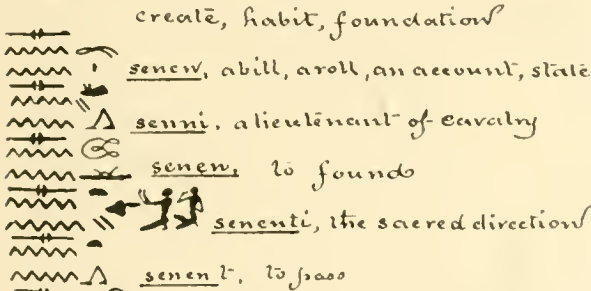 create, habit, foundation
senew, a bill, a roll, an account, state
senni, a lieutenant of cavalry
senen, to found
senenti, the sacred direction
senen t, to pass